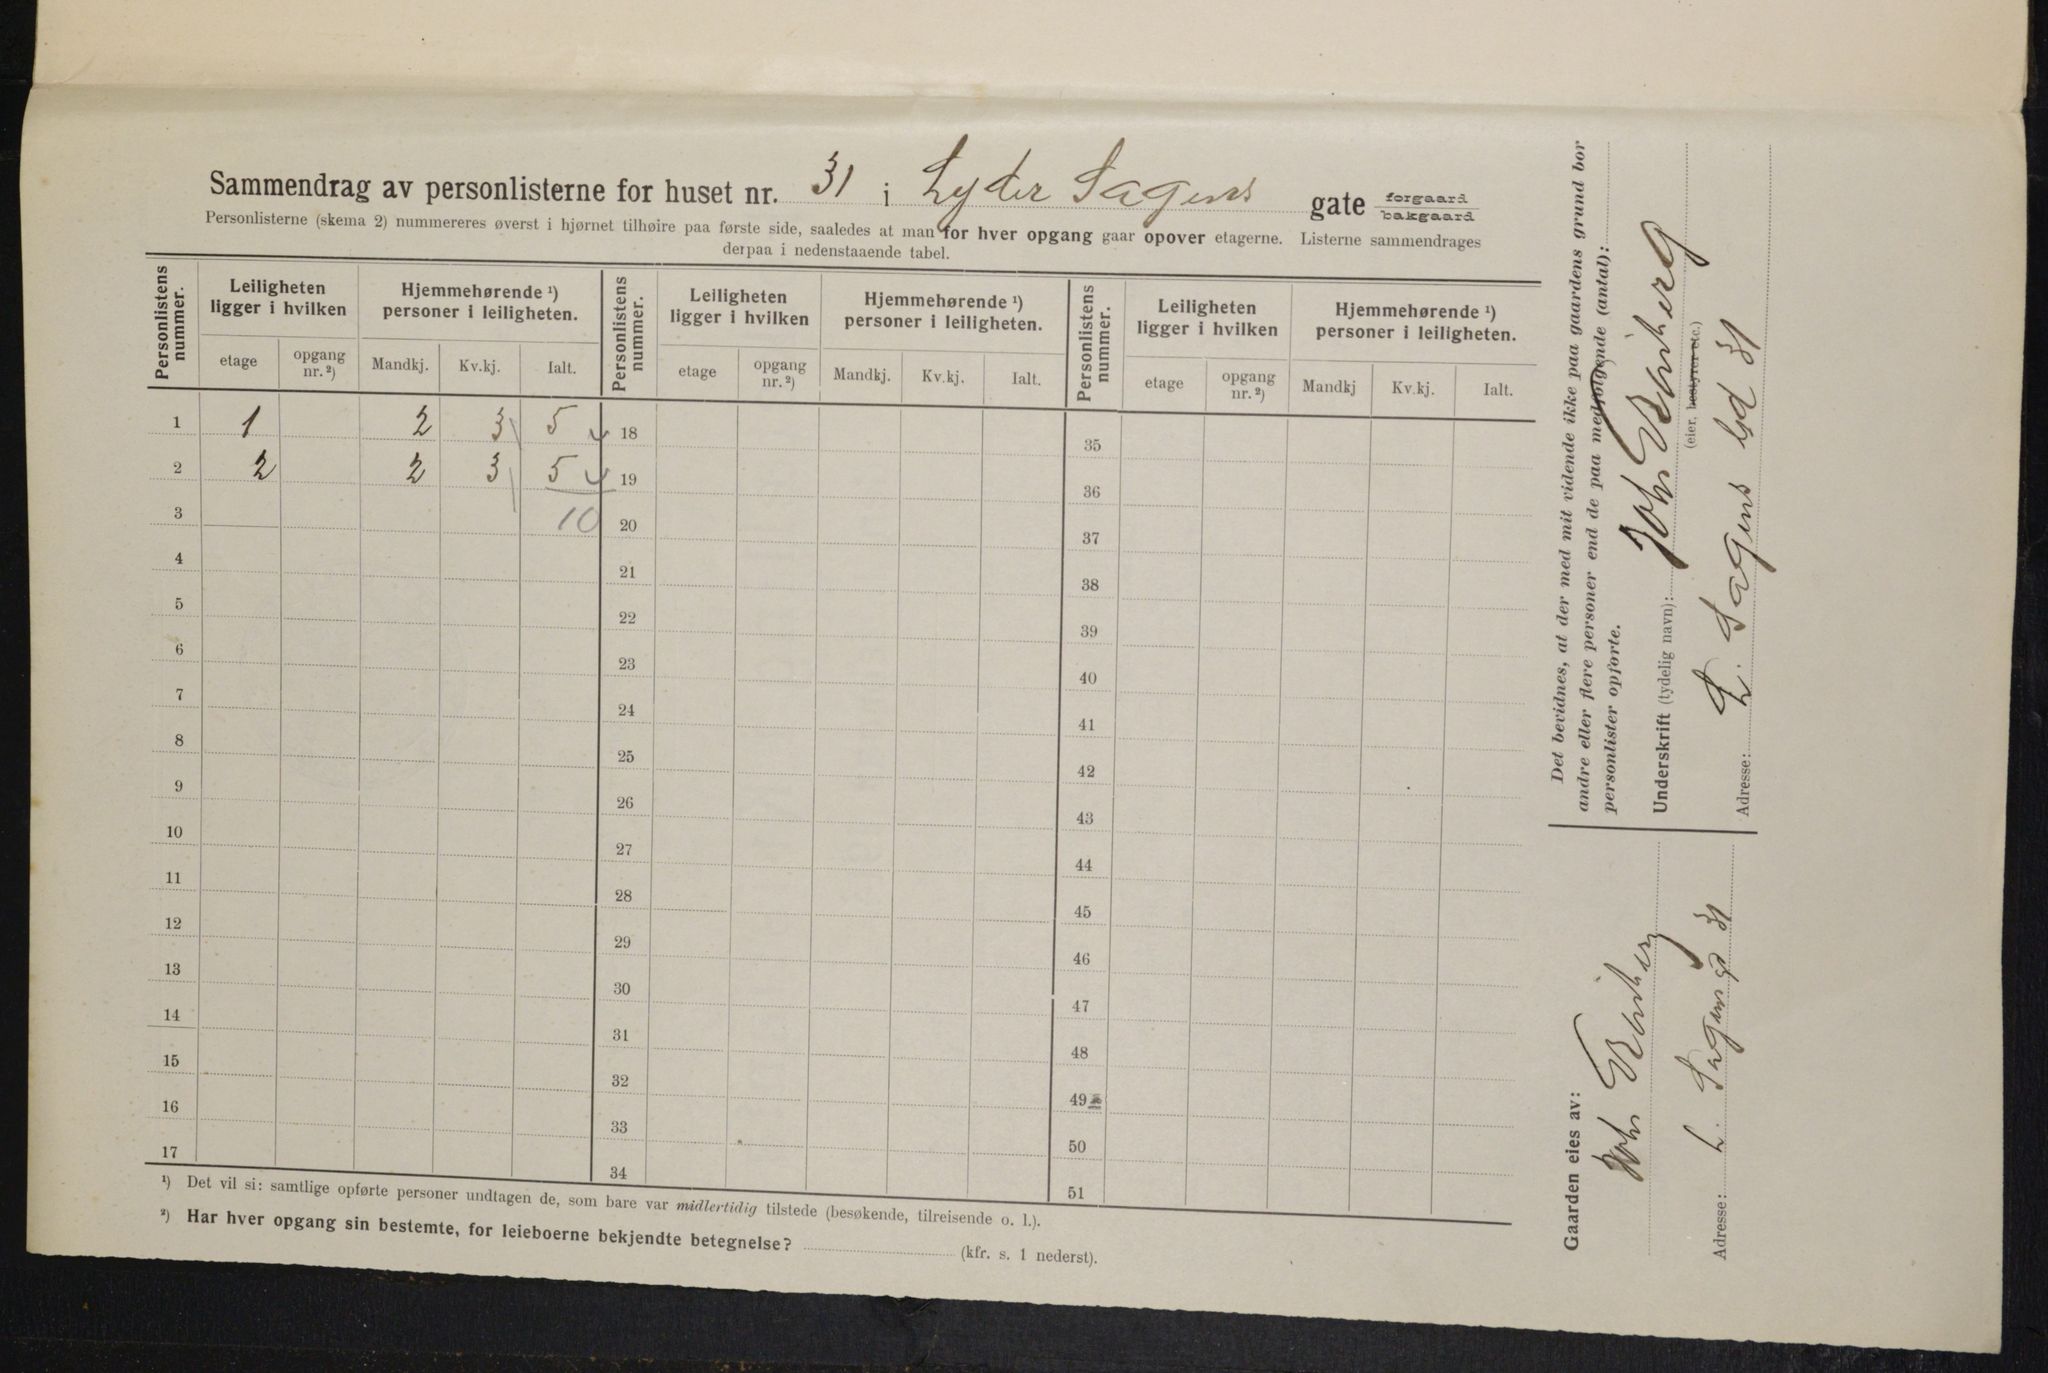 Sammendrag av personlisterne for huset nr. 31 i Lyder Sagens gate forgaard bakgaard
Personlisterne (skema 2) nummereres øverst i hjørnet tilhøire paa første side, saaledes at man for hver opgang gaar opover etagerne. Listerne sammendrages
derpaa i nedenstaaende tabel.
Personlistens nummer. Leiligheten ligger i hvilken Hjemmehørende ¹) personer i leiligheten. Personlistens nummer. Leiligheten ligger i hvilken Hjemmehørende ¹) personer i leiligheten. Personlistens nummer. Leiligheten ligger i hvilken Hjemmehørende ¹) personer i leiligheten.
etage opgang nr. ²) Mandkj. Kv.kj. Ialt. etage opgang nr. ²) Mandkj. Kv.kj. Ialt. etage opgang nr. ²) Mandkj Kv.kj. Ialt.
1 1 2 3 5 18 35
2 2 2 3 5 19 36
3 10 20 37
4 21 38
5 22 39
6 23 40
7 24 41
8 25 42
9 26 43
10 27 44
11 28 45
12 29 46
13 30 47
14 31 48
15 32 49
16 33 50
17 34 51
¹) Det vil si: samtlige opførte personer undtagen de, som bare var midlertidig tilstede (besøkende, tilreisende o. l.).
²) Har hver opgang sin bestemte, for leieboerne bekjendte betegnelse? (kfr. s. 1 nederst).
Det bevidnes, at der med mit vidende ikke paa gaardens grund bor
andre eller flere personer end de paa medfølgende (antal):
personlister opførte.
Underskrift (tydelig navn): Joh
(eier, bestyrer etc.)
Adresse: L. Sagens gd 31
Gaarden eies av:
Joh
Adresse: L. Sagens gd 31